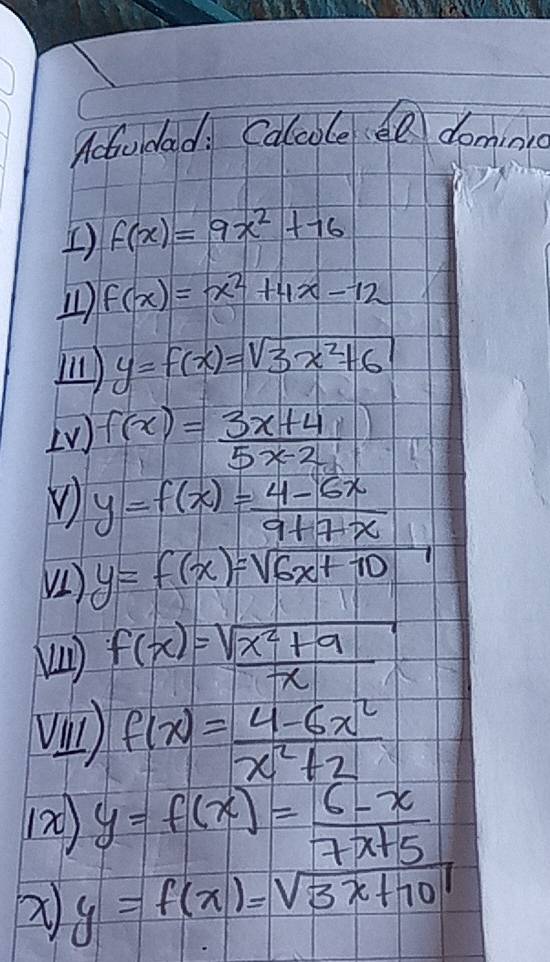 Actividad: Calcule el dominio
I) f(x) = 9x² + 16
II) f(x) = x² + 4x - 12
III) y = f(x) = √(3x² + 6)
IV) f(x) = (3x + 4)/(5x - 2)
V) y = f(x) = (4 - 6x)/(9 + 7x)
VI) y = f(x) = √(6x + 10)
VII) f(x) = √(x² + 9)/x
VIII) f(x) = (4 - 6x²)/(x² + 2)
IX) y = f(x) = (6 - x)/(7x + 5)
X) y = f(x) = √(3x + 10)